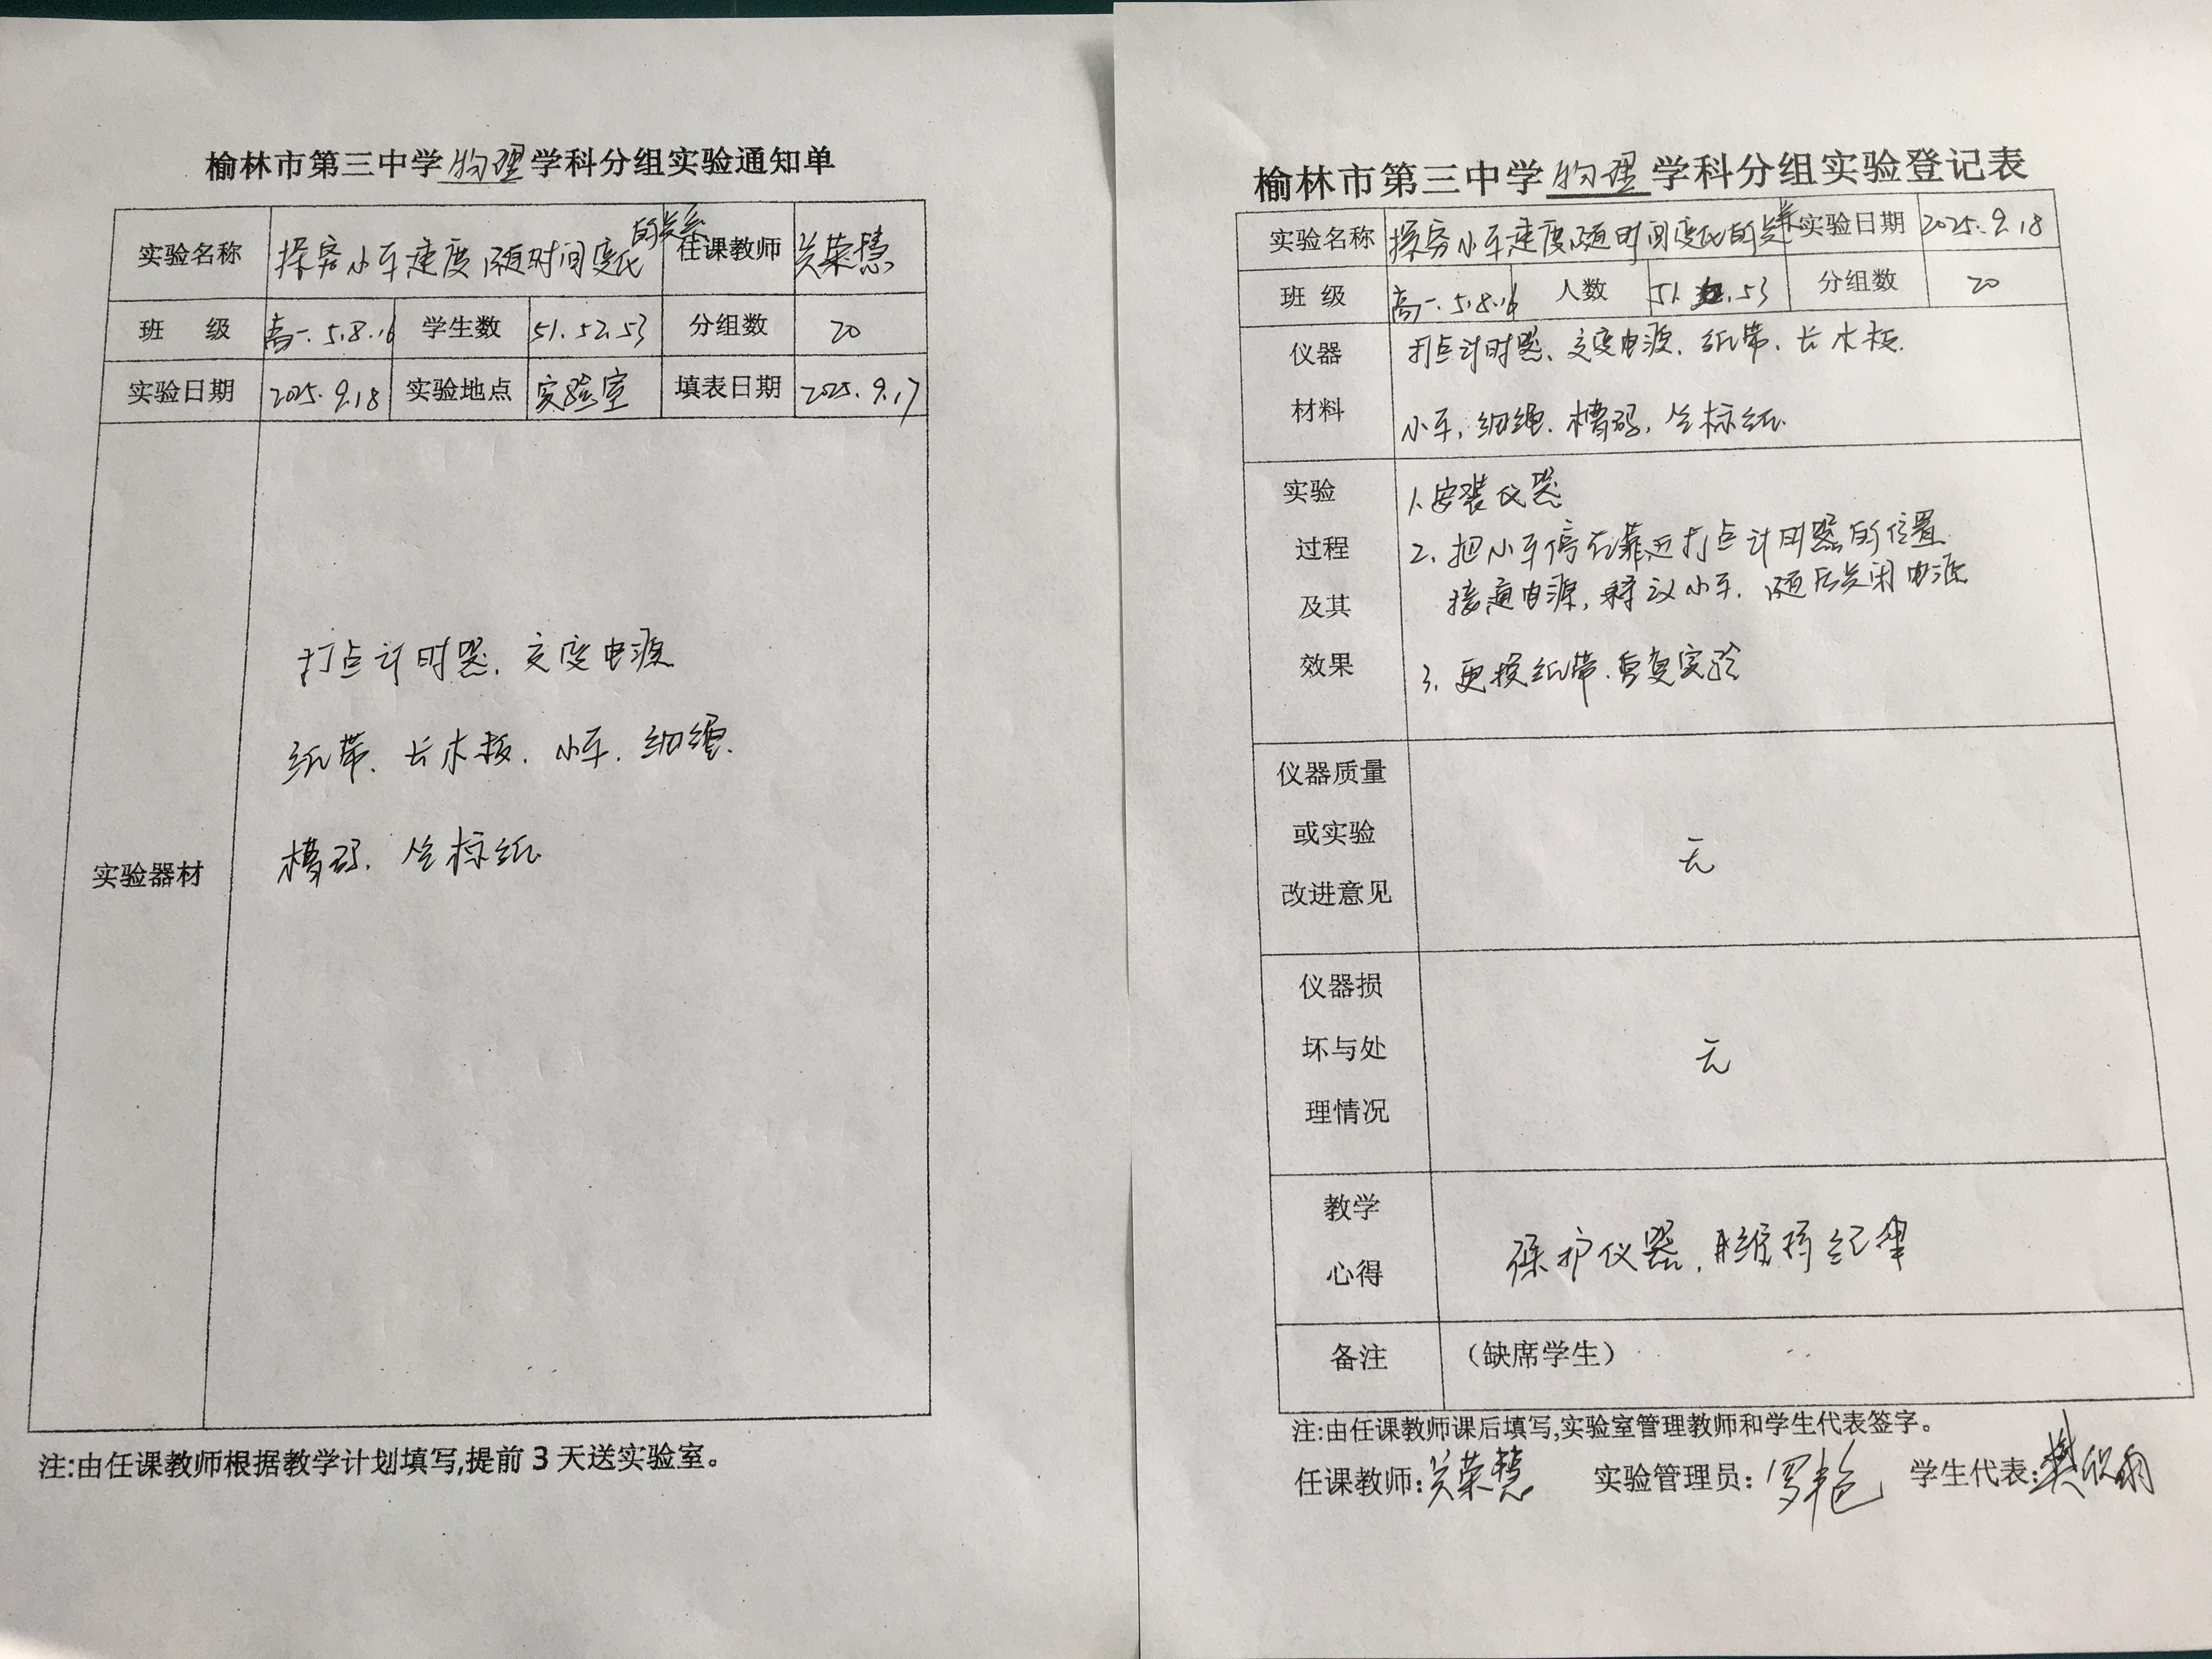 榆林市第三中学物理学科分组实验通知单
实验名称 探究小车速度随时间变化的关系 任课教师 关荣慧
班 级 高一.5.8.16 学生数 51.52.53 分组数 20
实验日期 2025.9.18 实验地点 实验室 填表日期 2025.9.17
实验器材
打点计时器、交变电源
纸带、长木板、小车、细绳、
槽码、坐标纸
注:由任课教师根据教学计划填写,提前3天送实验室。
榆林市第三中学物理学科分组实验登记表
实验名称 探究小车速度随时间变化的关系 实验日期 2025.9.18
班 级 高一.5.8.16 人数 51.52.53 分组数 20
仪器 打点计时器、交变电源、纸带、长木板、
材料 小车、细绳、槽码、坐标纸
实验 1.安装仪器
过程 2.把小车停在靠近打点计时器的位置
及其 接通电源,释放小车,随后关闭电源
效果 3.更换纸带、重复实验
仪器质量
或实验 无
改进意见
仪器损
坏与处 无
理情况
教学
心得 保护仪器,维持纪律
备注 (缺席学生)
注:由任课教师课后填写,实验室管理教师和学生代表签字。
任课教师:关荣慧 实验管理员:罗艳 学生代表:樊欣雨